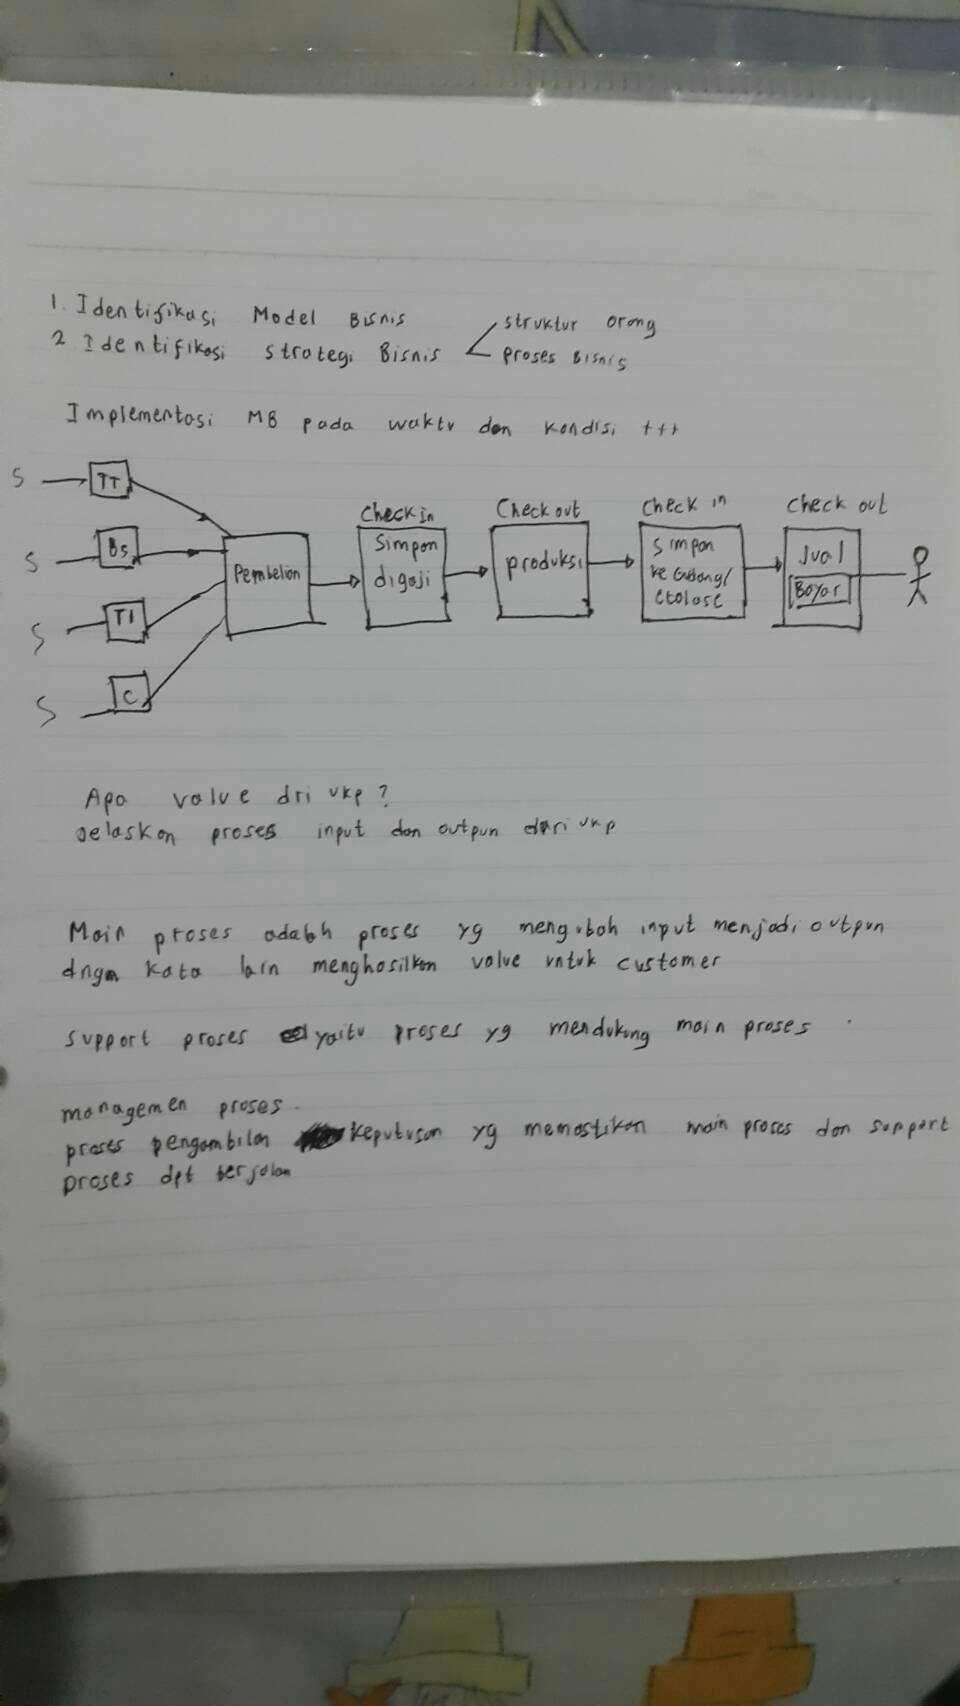 1. Identifikasi Model Bisnis
struktur orang
2 Identifikasi strategi Bisnis
proses Bisnis
Implementasi MB pada waktu dan kondisi ttt
S TT
S Bs
S TI
S C
Pembelian
Check in
Simpan
digaji
Check out
produksi
Check in
Simpan
ke Gudang/
etolase
Check out
Jual
Bayar
Apa value dri ukp?
Jelaskan proses input dan outpun dari ukp
Main proses adalah proses yg mengubah input menjadi outpun
dngn kata lain menghasilkan value untuk customer
support proses yaitu proses yg mendukung main proses.
managemen proses.
proses pengambilan keputusan yg memastikan main proses dan support
proses dpt berjalan